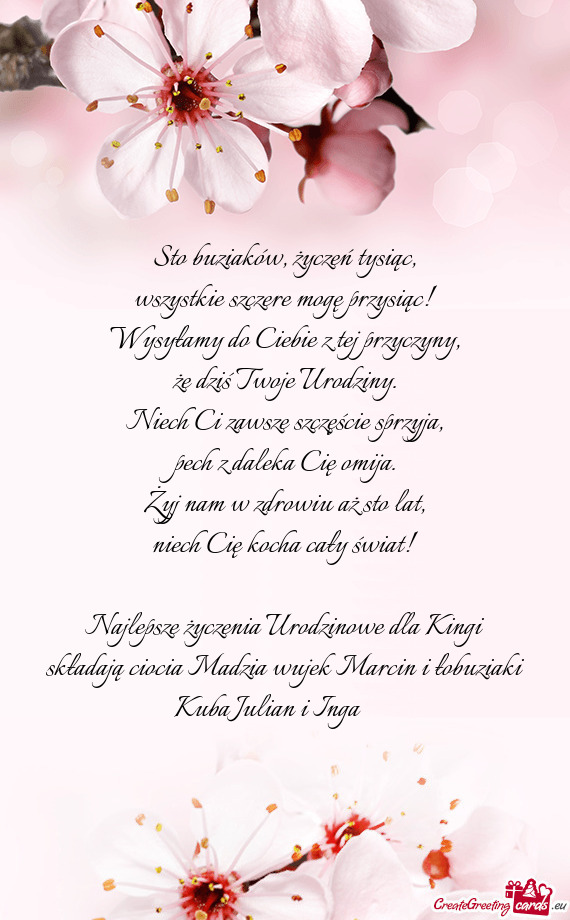 Sto buziaków, życzeń tysiąc,
wszystkie szczere mogę przysiąc!
Wysyłamy do Ciebie z tej przyczyny,
że dziś Twoje Urodziny.
Niech Ci zawsze szczęście sprzyja,
pech z daleka Cię omija.
Żyj nam w zdrowiu aż sto lat,
niech Cię kocha cały świat!
Najlepsze życzenia Urodzinowe dla Kingi
składają ciocia Madzia wujek Marcin i łobuziaki
Kuba Julian i Inga
CreateGreeting cards .eu